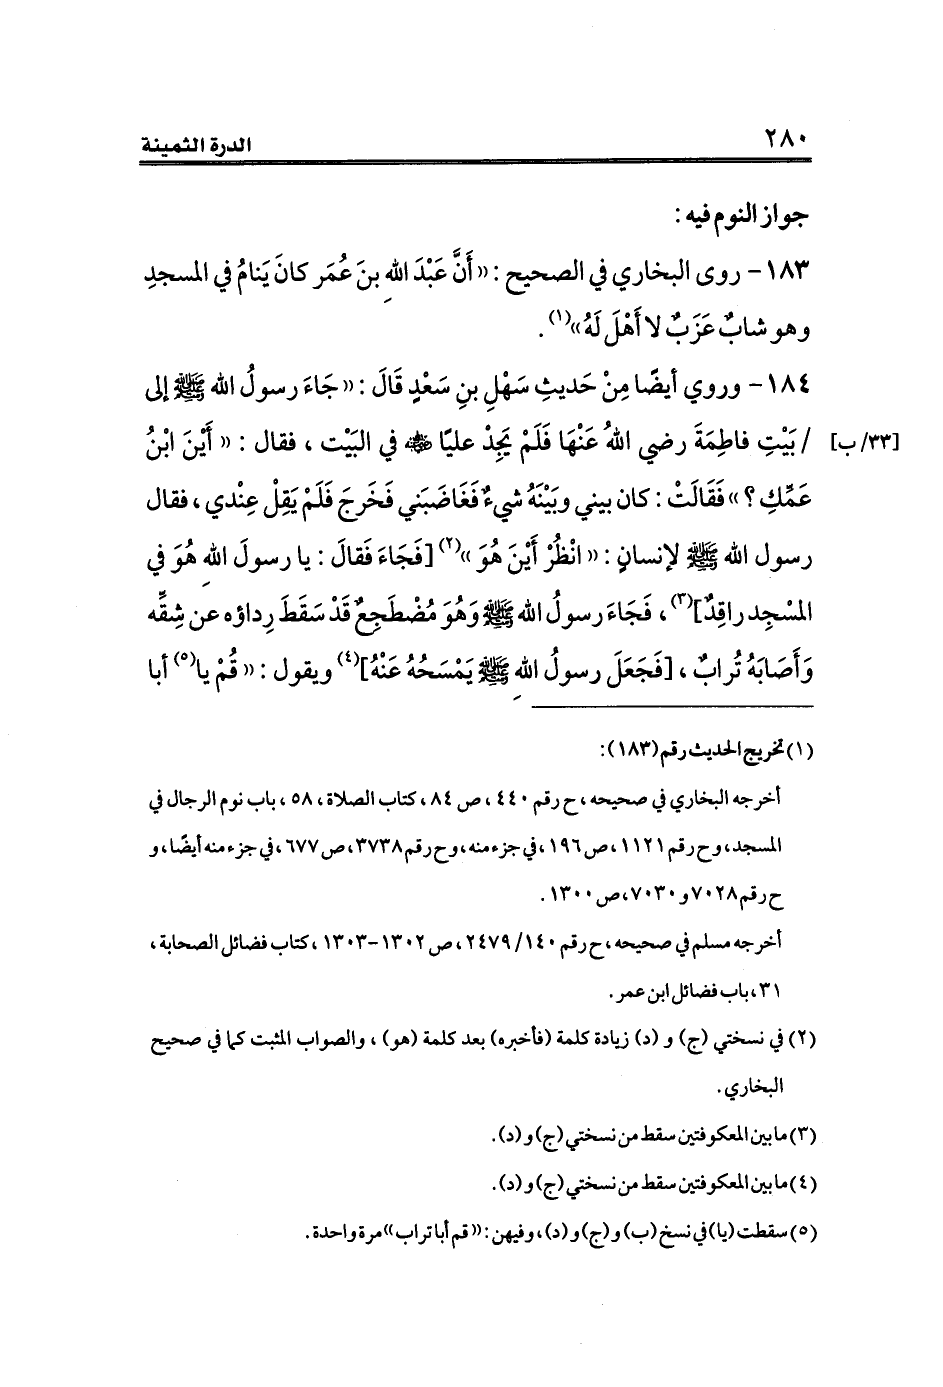 ٢٨٠ الدرة الثمينة
جواز النوم فيه :
١٨٣ – روى البخاري في الصحيح : « أَنَّ عَبْدَ اللهِ بنَ عُمَر كانَ يَنامُ في المسجدِ
وهو شابٌ عَزَبٌ لا أَهْلَ لَهُ»(١) .
١٨٤ – وروي أيضًا مِنْ حَديثِ سَهْلِ بنِ سَعْدٍ قَالَ : « جَاءَ رسولُ الله ﷺ إلى
/ بَيْتِ فاطِمَةَ رضي اللهُ عَنْهَا فَلَمْ يَجِدْ عليًا ﵁ في البَيْت ، فقال : « أَيْنَ ابْنُ [٣٣/ ب]
عَمِّكِ ؟ » فَقَالَتْ : كان بيني وبَيْنَهُ شيءٌ فَغَاضَبَني فَخَرجَ فَلَمْ يَقِلْ عِنْدي ، فقال
رسول الله ﷺ لإنسانٍ : « انْظُرْ أَيْنَ هُوَ »(٢) [فَجَاءَ فَقالَ : يا رسولَ اللهِ هُوَ في
المسْجِد راقِدٌ](٣) ، فَجَاءَ رسولُ الله ﷺ وَهُوَ مُضْطَجِعٌ قَدْ سَقَطَ رِداؤه عن شِقِّه
وَأَصَابَهُ تُرابٌ ، [فَجَعَلَ رسولُ اللهِ ﷺ يَمْسَحُهُ عَنْهُ](٤) ويقول : « قُمْ يا(٥) أبا
(١) تخريج الحديث رقم (١٨٣) :
أخرجه البخاري في صحيحه ، ح رقم ٤٤٠ ، ص ٨٤ ، كتاب الصلاة ، ٥٨ ، باب نوم الرجال في
المسجد، وح رقم ١١٢١ ، ص ١٩٦ ، في جزء منه ، وح رقم ٣٧٣٨ ، ص ٦٧٧ ، في جزء منه أيضًا ، و
ح رقم ٧٠٢٨ و ٧٠٣٠ ، ص ١٣٠٠ .
أخرجه مسلم في صحيحه ، ح رقم ١٤٠ / ٢٤٧٩ ، ص ١٣٠٢ – ١٣٠٣ ، كتاب فضائل الصحابة ،
٣١ ، باب فضائل ابن عمر .
(٢) في نسختي (ج) و (د) زيادة كلمة (فأخبره) بعد كلمة (هو) ، والصواب المثبت كما في صحيح
البخاري .
(٣) ما بين المعكوفتين سقط من نسختي (ج) و (د) .
(٤) ما بين المعكوفتين سقط من نسختي (ج) و (د) .
(٥) سقطت (يا) في نسخ (ب) و (ج) و (د) ، وفيهن : « قم أبا تراب » مرة واحدة .